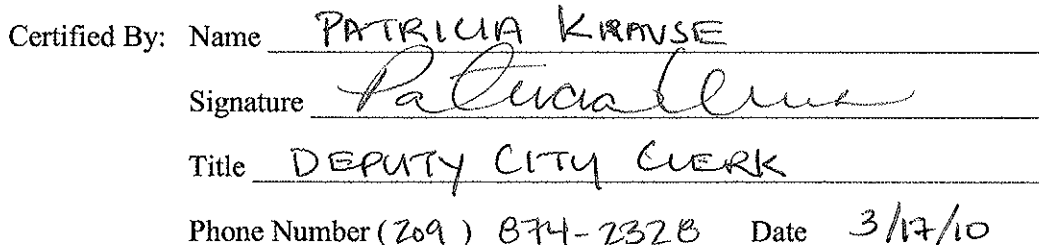 Certified By: Name PATRICIA KRAUSE
Signature Patricia Krause
Title DEPUTY CITY CLERK
Phone Number (209) 874-2328 Date 3/17/10